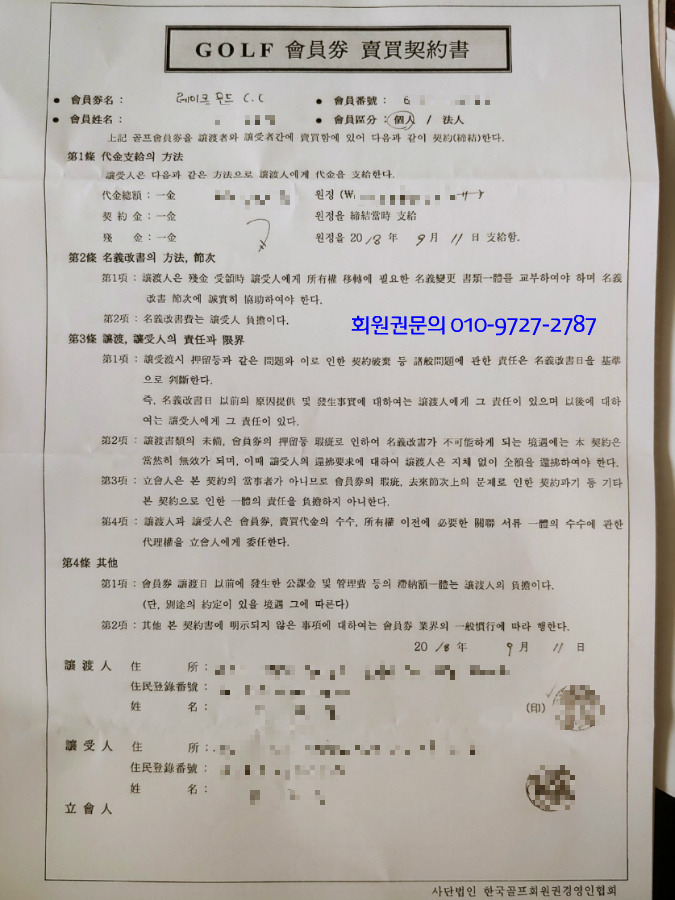 GOLF 會員券 賣買契約書
● 會員券名 : 레이크우드 C.C ● 會員番號 : 6
● 會員姓名 : ● 會員區分 : 個人 / 法人
上記 골프會員券을 讓渡者와 讓受者간에 賣買함에 있어 다음과 같이 契約(締結)한다.
第1條 代金支給의 方法
讓受人은 다음과 같은 方法으로 讓渡人에게 代金을 支給한다.
代金總額 : 一金 원정 (W
契約金 : 一金 원정을 締結當時 支給
殘 金 : 一金 원정을 2018 年 9 月 11 日 支給함.
第2條 名義改書의 方法, 節次
第1項 : 讓渡人은 殘金 受領時 讓受人에게 所有權 移轉에 必要한 名義變更 書類一體를 교부하여야 하며 名義
改書 節次에 誠實히 協助하여야 한다.
第2項 : 名義改書費는 讓受人 負擔이다.
회원권문의 010-9727-2787
第3條 讓渡, 讓受人의 責任과 限界
第1項 : 讓受渡시 押留等과 같은 問題와 이로 인한 契約破棄 등 諸般問題에 관한 責任은 名義改書日을 基準
으로 判斷한다.
즉, 名義改書日 以前의 原因提供 및 發生事實에 대하여는 讓渡人에게 그 責任이 있으며 以後에 대하
여는 讓受人에게 그 責任이 있다.
第2項 : 讓渡書類의 未備, 會員券의 押留등 瑕疵로 인하여 名義改書가 不可能하게 되는 境遇에는 本 契約은
當然히 無效가 되며, 이때 讓受人의 還拂要求에 대하여 讓渡人은 지체 없이 全額을 還拂하여야 한다.
第3項 : 立會人은 본 契約의 當事者가 아니므로 會員券의 瑕疵, 去來節次上의 문제로 인한 契約과기 등 기타
본 契約으로 인한 一體의 責任을 負擔하지 아니한다.
第4項 : 讓渡人과 讓受人은 會員券, 賣買代金의 수수, 所有權 이전에 必要한 關聯 서류 一體의 수수에 관한
代理權을 立會人에게 委任한다.
第4條 其他
第1項 : 會員券 讓渡日 以前에 發生한 公課金 및 管理費 등의 滯納額一體는 讓渡人의 負擔이다.
(단, 別途의 約定이 있을 境遇 그에 따른다)
第2項 : 其他 본 契約書에 明示되지 않은 事項에 대하여는 會員券 業界의 一般慣行에 따라 行한다.
2018 年 9 月 11 日
讓渡人 住 所 :
住民登錄番號 :
姓 名 : (印)
讓受人 住 所 :
住民登錄番號 :
姓 名 :
立會人
사단법인 한국골프회원권경영인협회